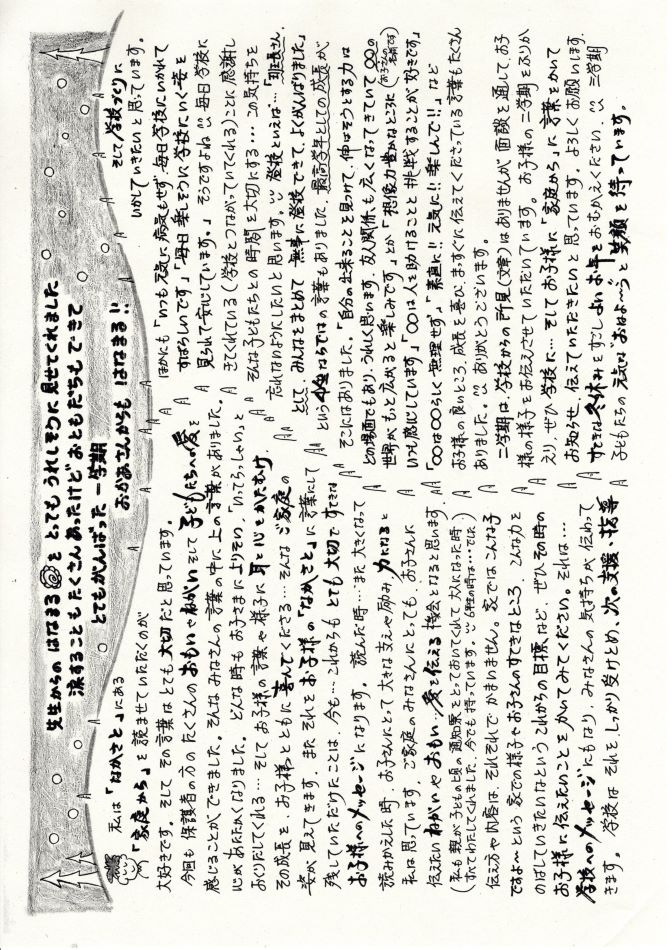 先生からの はなまる を とっても うれしそうに 見せてくれました
涙することも たくさんあったけど おともだちもできて
とてもがんばった 一学期
おかあさんからも はなまる!!
私は「なかさと」にある
「家庭から」を 読ませていただくのが
大好きです。そして その言葉は とても大切だと思っています。
今回も 保護者の方の たくさんの おもいやねがい そして 子どもたちへの愛を
感じることができました。そんな みなさんの言葉の中に 上の言葉がありました。
心が あたたかくなりました。どんな時も お子さまに よりそい、「いってらっしゃい」と
おくりだしてくれる… そして お子様の 言葉や様子に 耳と心をかたむけ
その成長を、お子様とともに 喜んでくださる… そんな ご家庭の
姿が 見えてきます。また それを お子様の「なかさと」に 言葉にして
残していただけたことは、今も… これからも とても大切で すてきな
お子様へのメッセージになります。読んだ時… また 大きくなって
読みかえした時、お子さんにとって 大きな支えや 励み、力になると
私は 思っています。ご家庭のみなさんにとっても、お子さんに
伝えたい ねがいや おもい…愛を伝える 機会となると思います。
(私も 親が 子どもの頃の 通知票を とっておいてくれて 大人になった時
伝え方や 内容は、それぞれで かまいません。家では こんな子
ですよ〜という 家での様子や お子さんの すてきなところ、こんな力を
のばしていきたいな という これからの目標など、ぜひ その時の
お子様に 伝えたいことを かいてみてください。それは…
学校へのメッセージにもなり、みなさんの 気持ちが 伝わって
きます。学校は それを しっかり受けとめ、次の支援・指導
そして 学校づくりに
いかしていきたいと思っています。
ほかにも「いつも元気に 病気もせず、毎日学校にいかれて
すばらしいです」「毎日 楽しそうに 学校にいく姿を
見られて 安心しています。」 そうですよね 毎日 学校に
きてくれている(学校とつながっていてくれる)ことに 感謝し
そんな 子どもたちとの 時間を 大切にする… この気持ちを
忘れないようにしたいと思います。登校といえば…「班長さん
として、みんなをまとめて 無事に登校できて、よくがんばりました」
という ならではの言葉もありました。最高学年としての 成長が
そこにはありました。「自分の出来ることを 見つけて、伸ばそうとする力は
どの場面でもあり、うれしく思います。友人関係も 広くなってきていて ○○の
世界が もっと広がると 楽しみです」とか「想像力豊かなところに
いつも感じています」「○○は 人を助けることと 挑戦することが 好きです」
「○○は ○○らしく 無理せず」「素直に!! 元気に!! 楽しんで!!」など
お子様の 良いところ、成長を喜び、まっすぐに 伝えてくださっている 言葉も たくさん
ありました。ありがとうございます。
二学期は、学校からの 所見(文章)は ありませんが、面談を通して、お子
様の様子を お伝えさせていただいています。お子様の 二学期をふりか
えり、ぜひ 学校に… そして お子様に「家庭から」に 言葉をかいて
お知らせ、伝えていただきたいと 思っています。よろしくお願いします。
すてきな冬休みをすごし よいお年を おむかえください 三学期
子どもたちの 元気な「おはよ〜う」と 笑顔を 待っています。